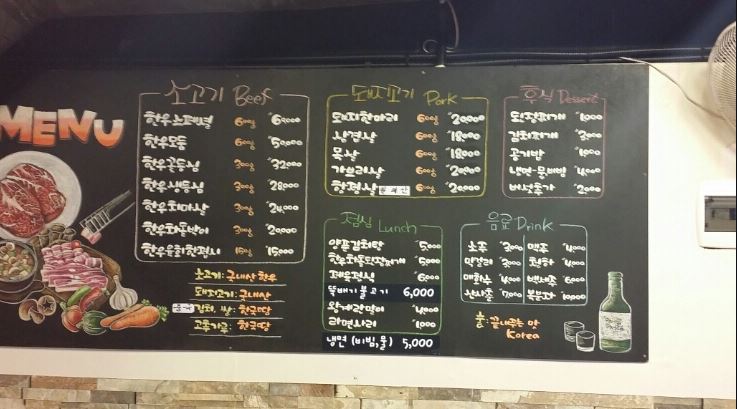 MENU
소고기 Beef
한우스페셜 600g 60,000
한우모듬 600g 50,000
한우꽃등심 300g 32,000
한우생등심 300g 28,000
한우치마살 300g 24,000
한우차돌박이 300g 20,000
한우육회한접시 150g 15,000
소고기: 국내산 한우
돼지고기: 국내산
김치, 쌀: 한국땅
고춧가루: 한국땅
돼지고기 Pork
돼지한마리 600g 20,000
삼겹살 600g 18,000
목살 600g 18,000
가브리살 600g 20,000
항정살 600g 20,000
점심 Lunch
양푼김치탕 5,000
한우차돌된장찌개 5,000
제육정식 6,000
뚝배기불고기 6,000
왕계란말이 4,000
라면사리 1,000
냉면 (비빔,물) 5,000
후식 Dessert
된장찌개 1,000
김치찌개 3,000
공기밥 1,000
냉면·물비빔 4,000
버섯추가 2,000
음료 Drink
소주 3,000 맥주 4,000
막걸리 3,000 청하 4,000
매화수 4,000 백세주 6,000
산사춘 7,000 복분자 10,000
술: 끝내주는 맛
Korea